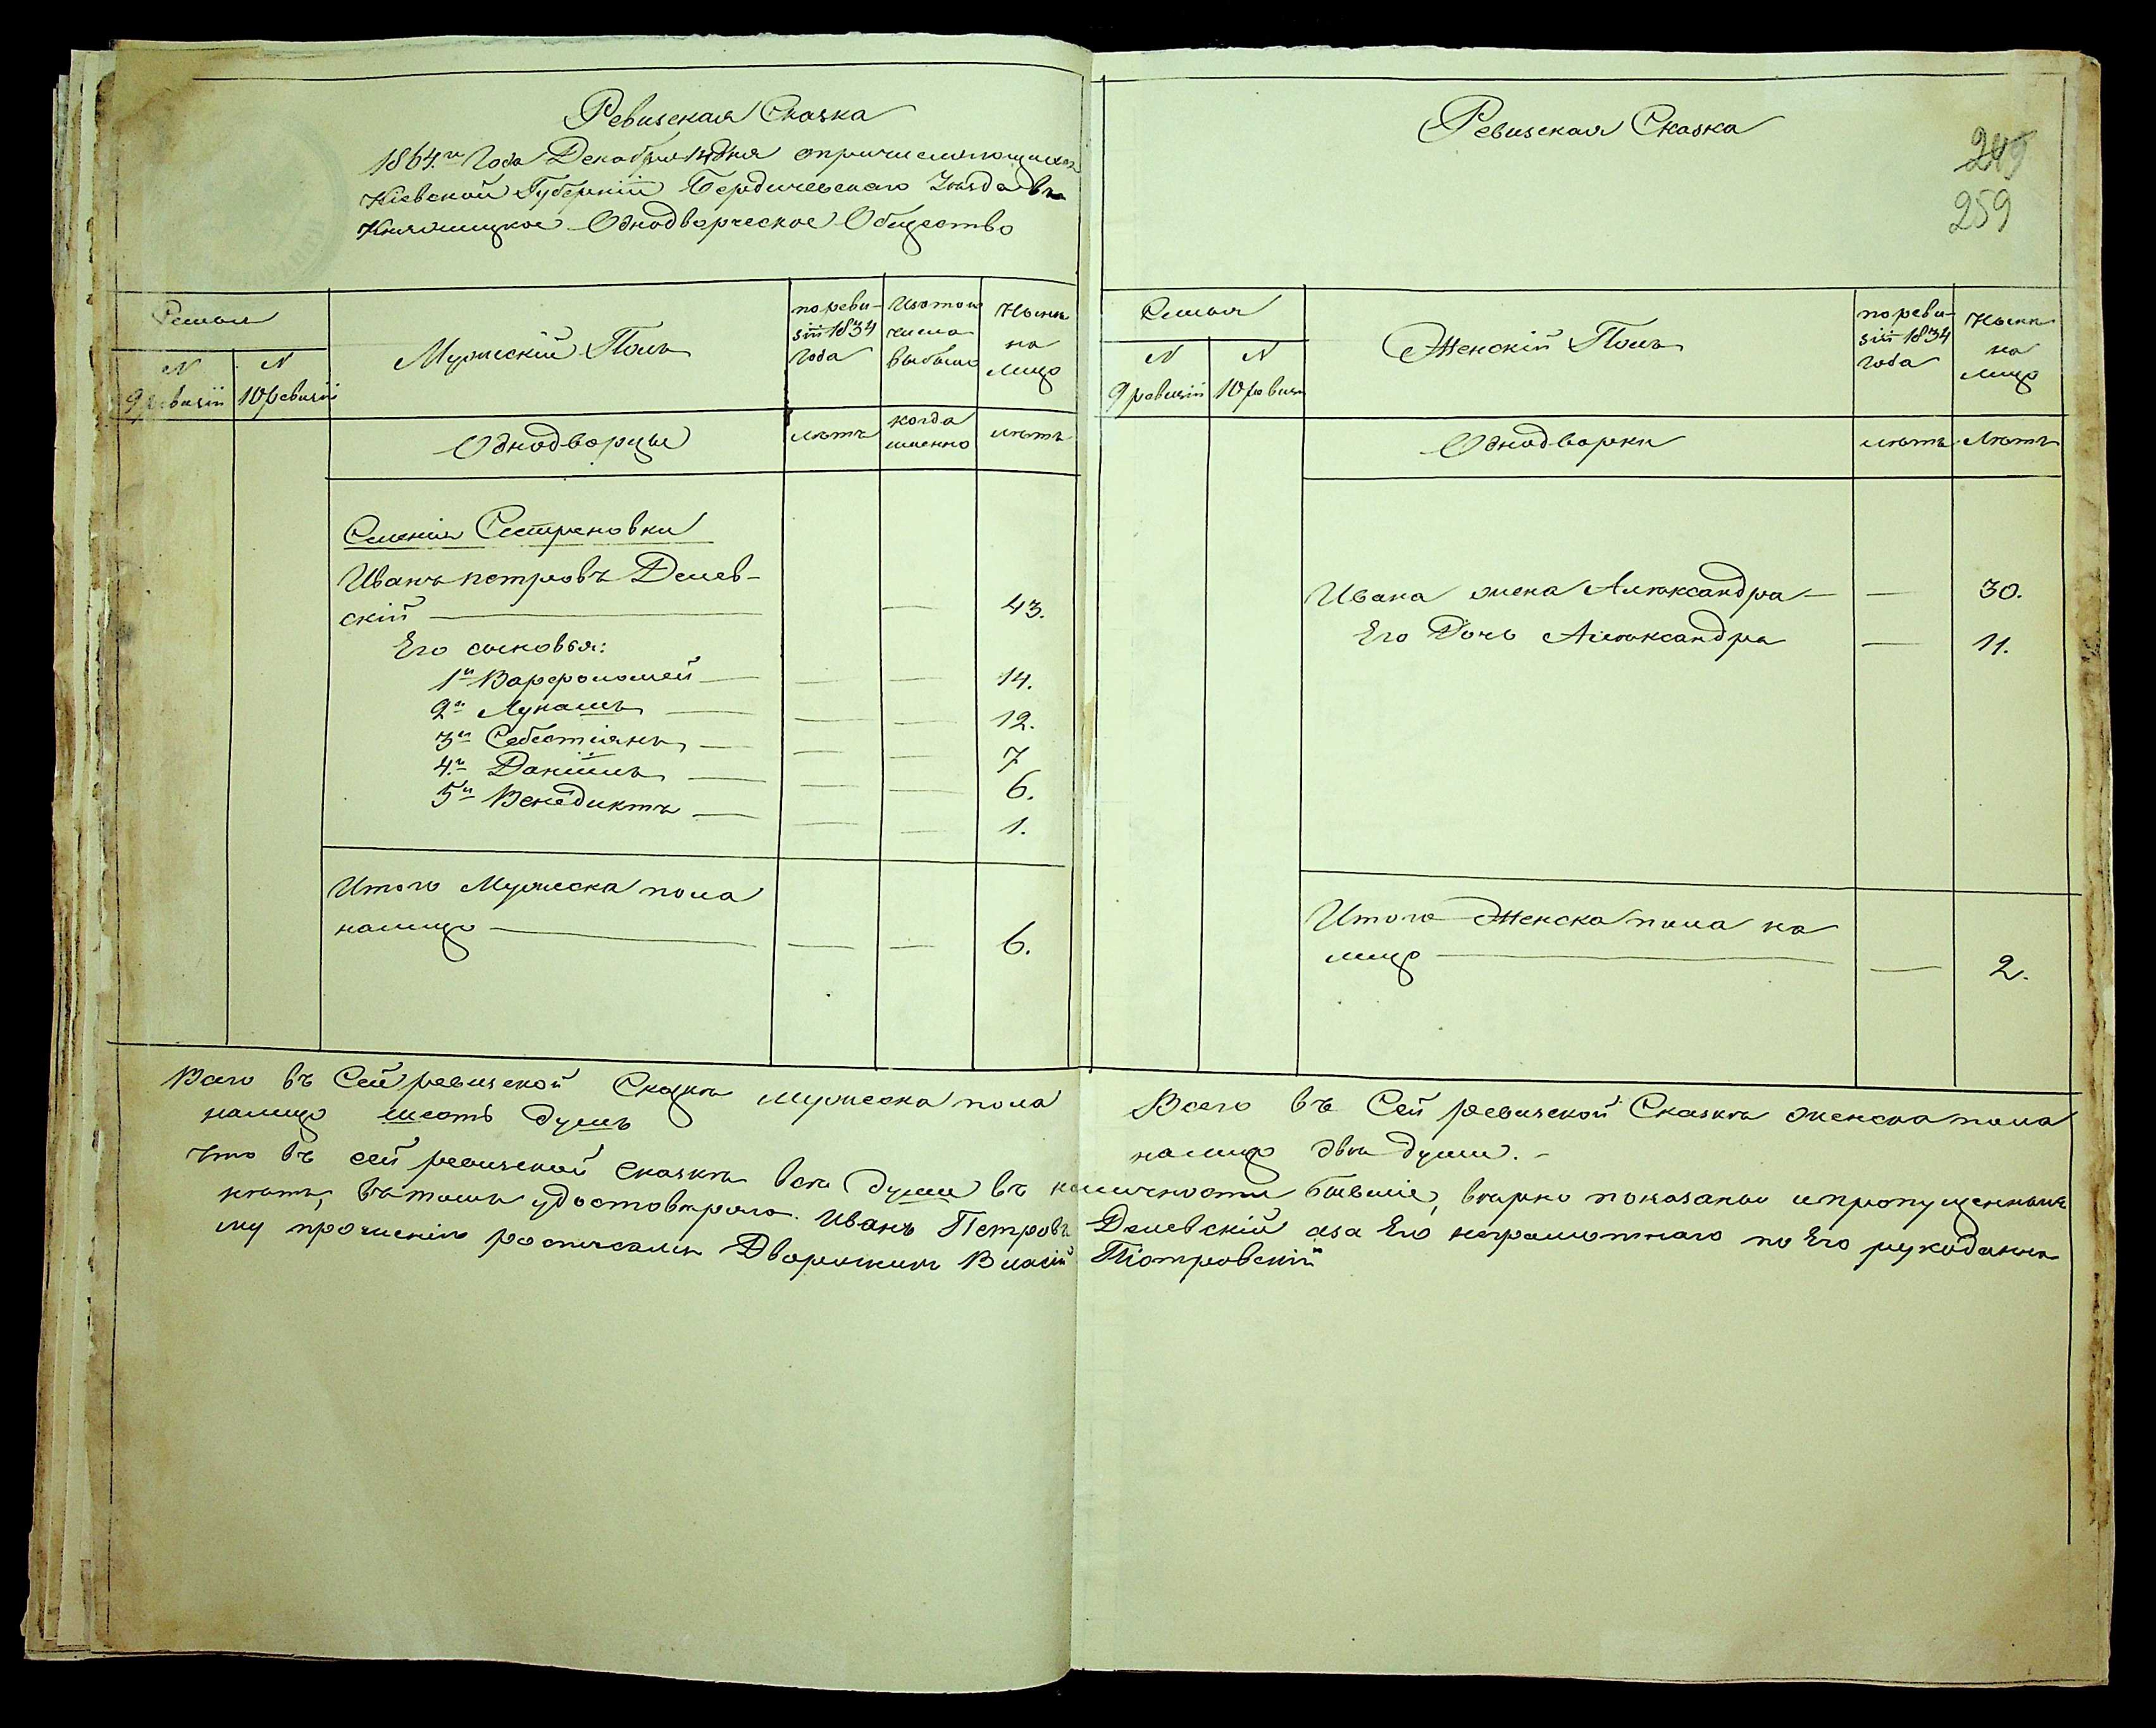 Ревизская Сказка
1864.го Года Декабря дня о причисляющихся
Кіевской Губерніи Бердичевскаго Уѣзда въ
Княжицкое Однодворческое Общество
Семьи
N
9 ревизіи
N
10 ревизіи
Мужескій Полъ
по реви-
зіи 1834
Года
Изъ того
числа
выбыло
Нынѣ
на
лицо
Однодворцы
лѣтъ
когда
именно
лѣтъ
Селенія Сестреновки
Иванъ петровъ Делев-
скій — — 43.
Его сыновья:
1й Варфоломей — — — 14.
2й Лукашъ — — — 12.
3й Себестіянъ — — — 7
4й Даніилъ — — — 6.
5й Венедиктъ — — — 1.
Итого Мужеска пола
налицо — — — 6.
Всего въ Сей ревизской Сказкѣ мужеска пола
налицо шесть душъ
Ревизская Сказка
249
259
Семья
N
9 ревизіи
N
10 ревизіи
Женскій Полъ
по реви-
зіи 1834
года
Нынѣ
на
лицо
Однодворки
лѣтъ
Лѣтъ
Ивана жена Алѣксандра — — 30.
Его Дочь Алѣксандра — 11.
Итого Женска пола на
лицо — — 2.
Всего въ Сей ревизской Сказкѣ женска пола
налицо двѣ души. -
Что въ сей ревизской сказкѣ всѣ души въ наличности бывшіе, вѣрно показаны и пропущенныхъ
нѣтъ, въ томъ удостовѣряю. Иванъ Петровъ Делевскій а за Его неграмотнаго по Его рукоданно
му прошенію росписался Дворянинъ Власій Піотровскій